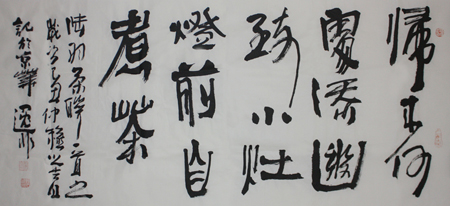 歸來何
處添幽
致小灶
燈前自
煮茶
陸羽茶
歲次
記於京華